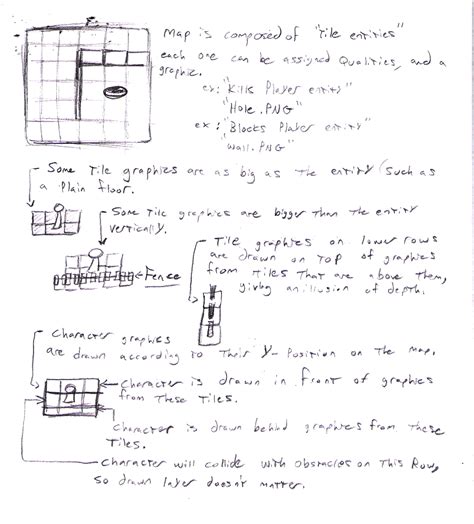 Map is composed of "Tile entities"
each one can be assigned Qualities, and a
graphic.
ex: "Kills Player entity"
"Hole.PNG"
ex: "Blocks Player entity"
"Wall.PNG"
Some Tile graphics are as big as the entity (such as
a Plain floor.
Some Tile graphics are bigger than the entity
vertically.
Fence
Tile graphics on lower rows
are drawn on top of graphics
from Tiles that are above them,
giving an illusion of depth.
Character graphics
are drawn according to Their Y-Position on The map.
Character is drawn in front of graphics
from These Tiles.
Character is drawn behind graphics from these
Tiles.
Character will collide with obstacles on This Row,
so drawn layer doesn't matter.